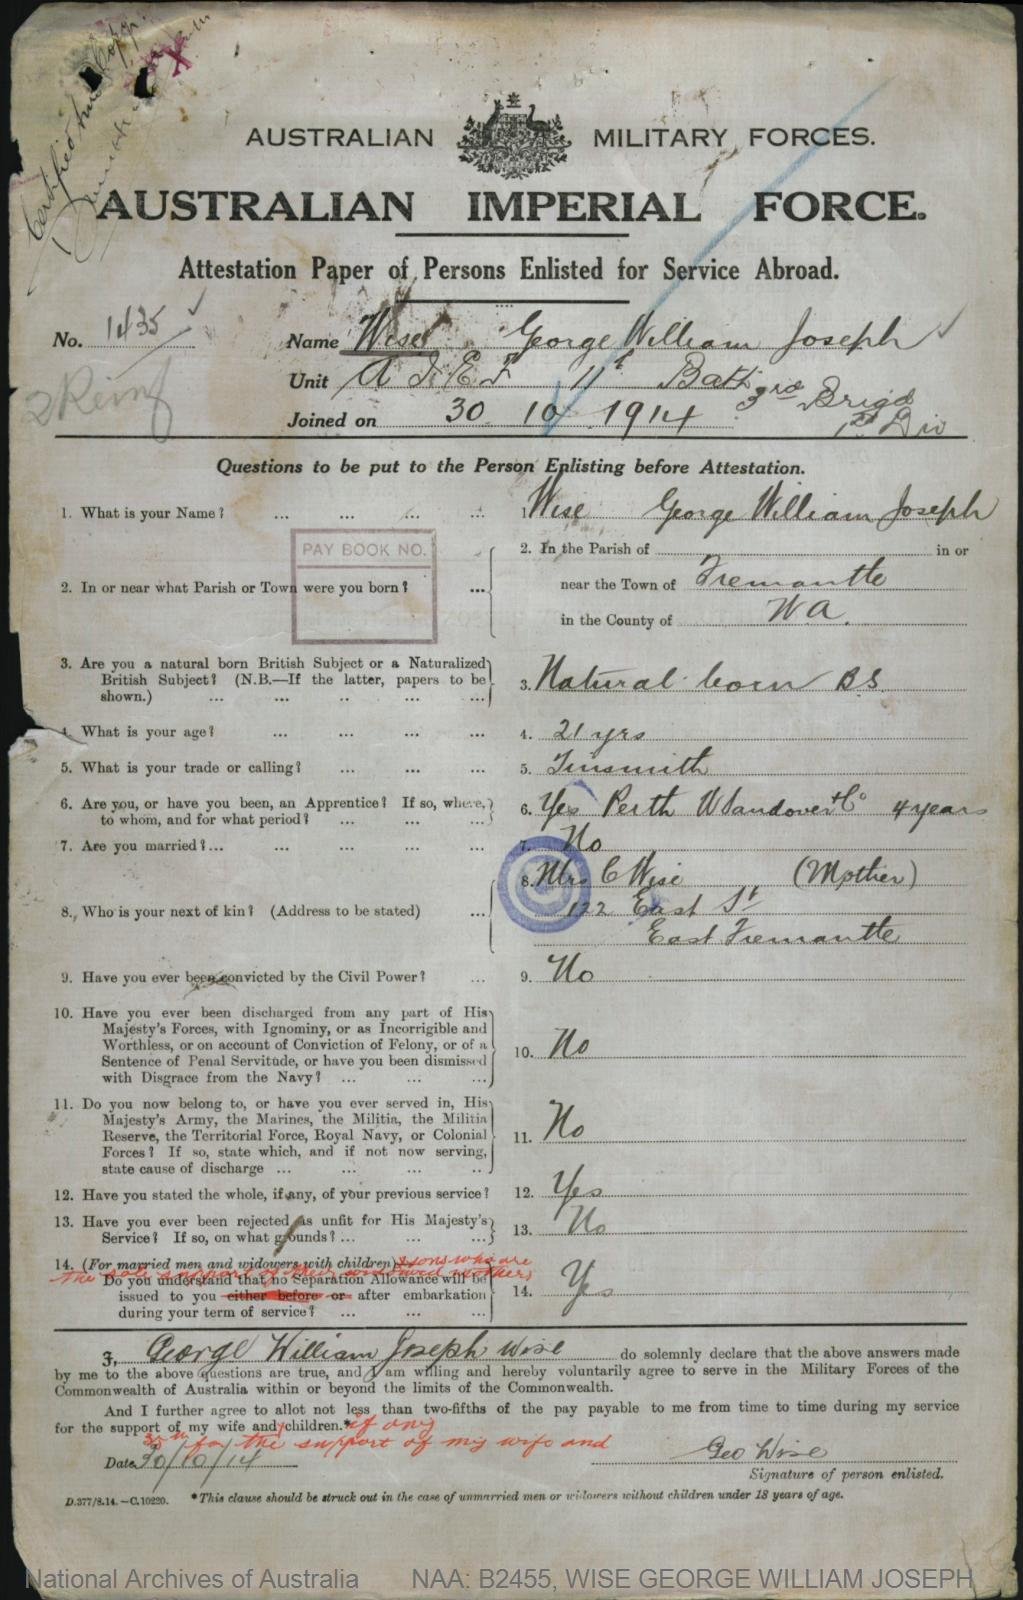 Certified true Copy
X
AUSTRALIAN MILITARY FORCES.
AUSTRALIAN IMPERIAL FORCE.
Attestation Paper of Persons Enlisted for Service Abroad.
No. 1435
Name Wise George William Joseph
2 Reinf
Unit A I E F 11th Batt 3rd Brigd
1st Div
Joined on 30 10 1914
Questions to be put to the Person Enlisting before Attestation.
1. What is your Name? ... ... ... ... 1. Wise George William Joseph
PAY BOOK NO.
2. In or near what Parish or Town were you born? ... 2. In the Parish of in or
near the Town of Fremantle
in the County of W.A.
3. Are you a natural born British Subject or a Naturalized
British Subject? (N.B.—If the latter, papers to be
shown.) ... ... ... ... 3. Natural born B.S.
4. What is your age? ... ... ... 4. 21 yrs
5. What is your trade or calling? ... ... ... 5. Tinsmith
6. Are you, or have you been, an Apprentice? If so, where,
to whom, and for what period? ... ... ... 6. Yes Perth W Sandover & Co 4 years
7. Are you married?... ... ... ... 7. No
8. Who is your next of kin? (Address to be stated) ... 8. Mrs C Wise (Mother)
122 East St
East Fremantle
9. Have you ever been convicted by the Civil Power? ... 9. No
10. Have you ever been discharged from any part of His
Majesty's Forces, with Ignominy, or as Incorrigible and
Worthless, or on account of Conviction of Felony, or of a
Sentence of Penal Servitude, or have you been dismissed
with Disgrace from the Navy? ... ... ... 10. No
11. Do you now belong to, or have you ever served in, His
Majesty's Army, the Marines, the Militia, the Militia
Reserve, the Territorial Force, Royal Navy, or Colonial
Forces? If so, state which, and if not now serving,
state cause of discharge ... ... ... .. 11. No
12. Have you stated the whole, if any, of your previous service? 12. Yes
13. Have you ever been rejected as unfit for His Majesty's
Service? If so, on what grounds? ... ... ... 13. No
14. (For married men and widowers with children) & sons who are
the sole support of their widowed mothers
Do you understand that no Separation Allowance will be
issued to you either before or after embarkation
during your term of service? ... ... ... 14. Yes
I, George William Joseph Wise do solemnly declare that the above answers made
by me to the above questions are true, and I am willing and hereby voluntarily agree to serve in the Military Forces of the
Commonwealth of Australia within or beyond the limits of the Commonwealth.
And I further agree to allot not less than two-fifths of the pay payable to me from time to time during my service
for the support of my wife and children.* if any
for the support of my wife and
Date 30/10/14 Geo Wise
Signature of person enlisted.
D.377/8.14.—C.10220. *This clause should be struck out in the case of unmarried men or widowers without children under 18 years of age.
National Archives of Australia NAA: B2455, WISE GEORGE WILLIAM JOSEPH